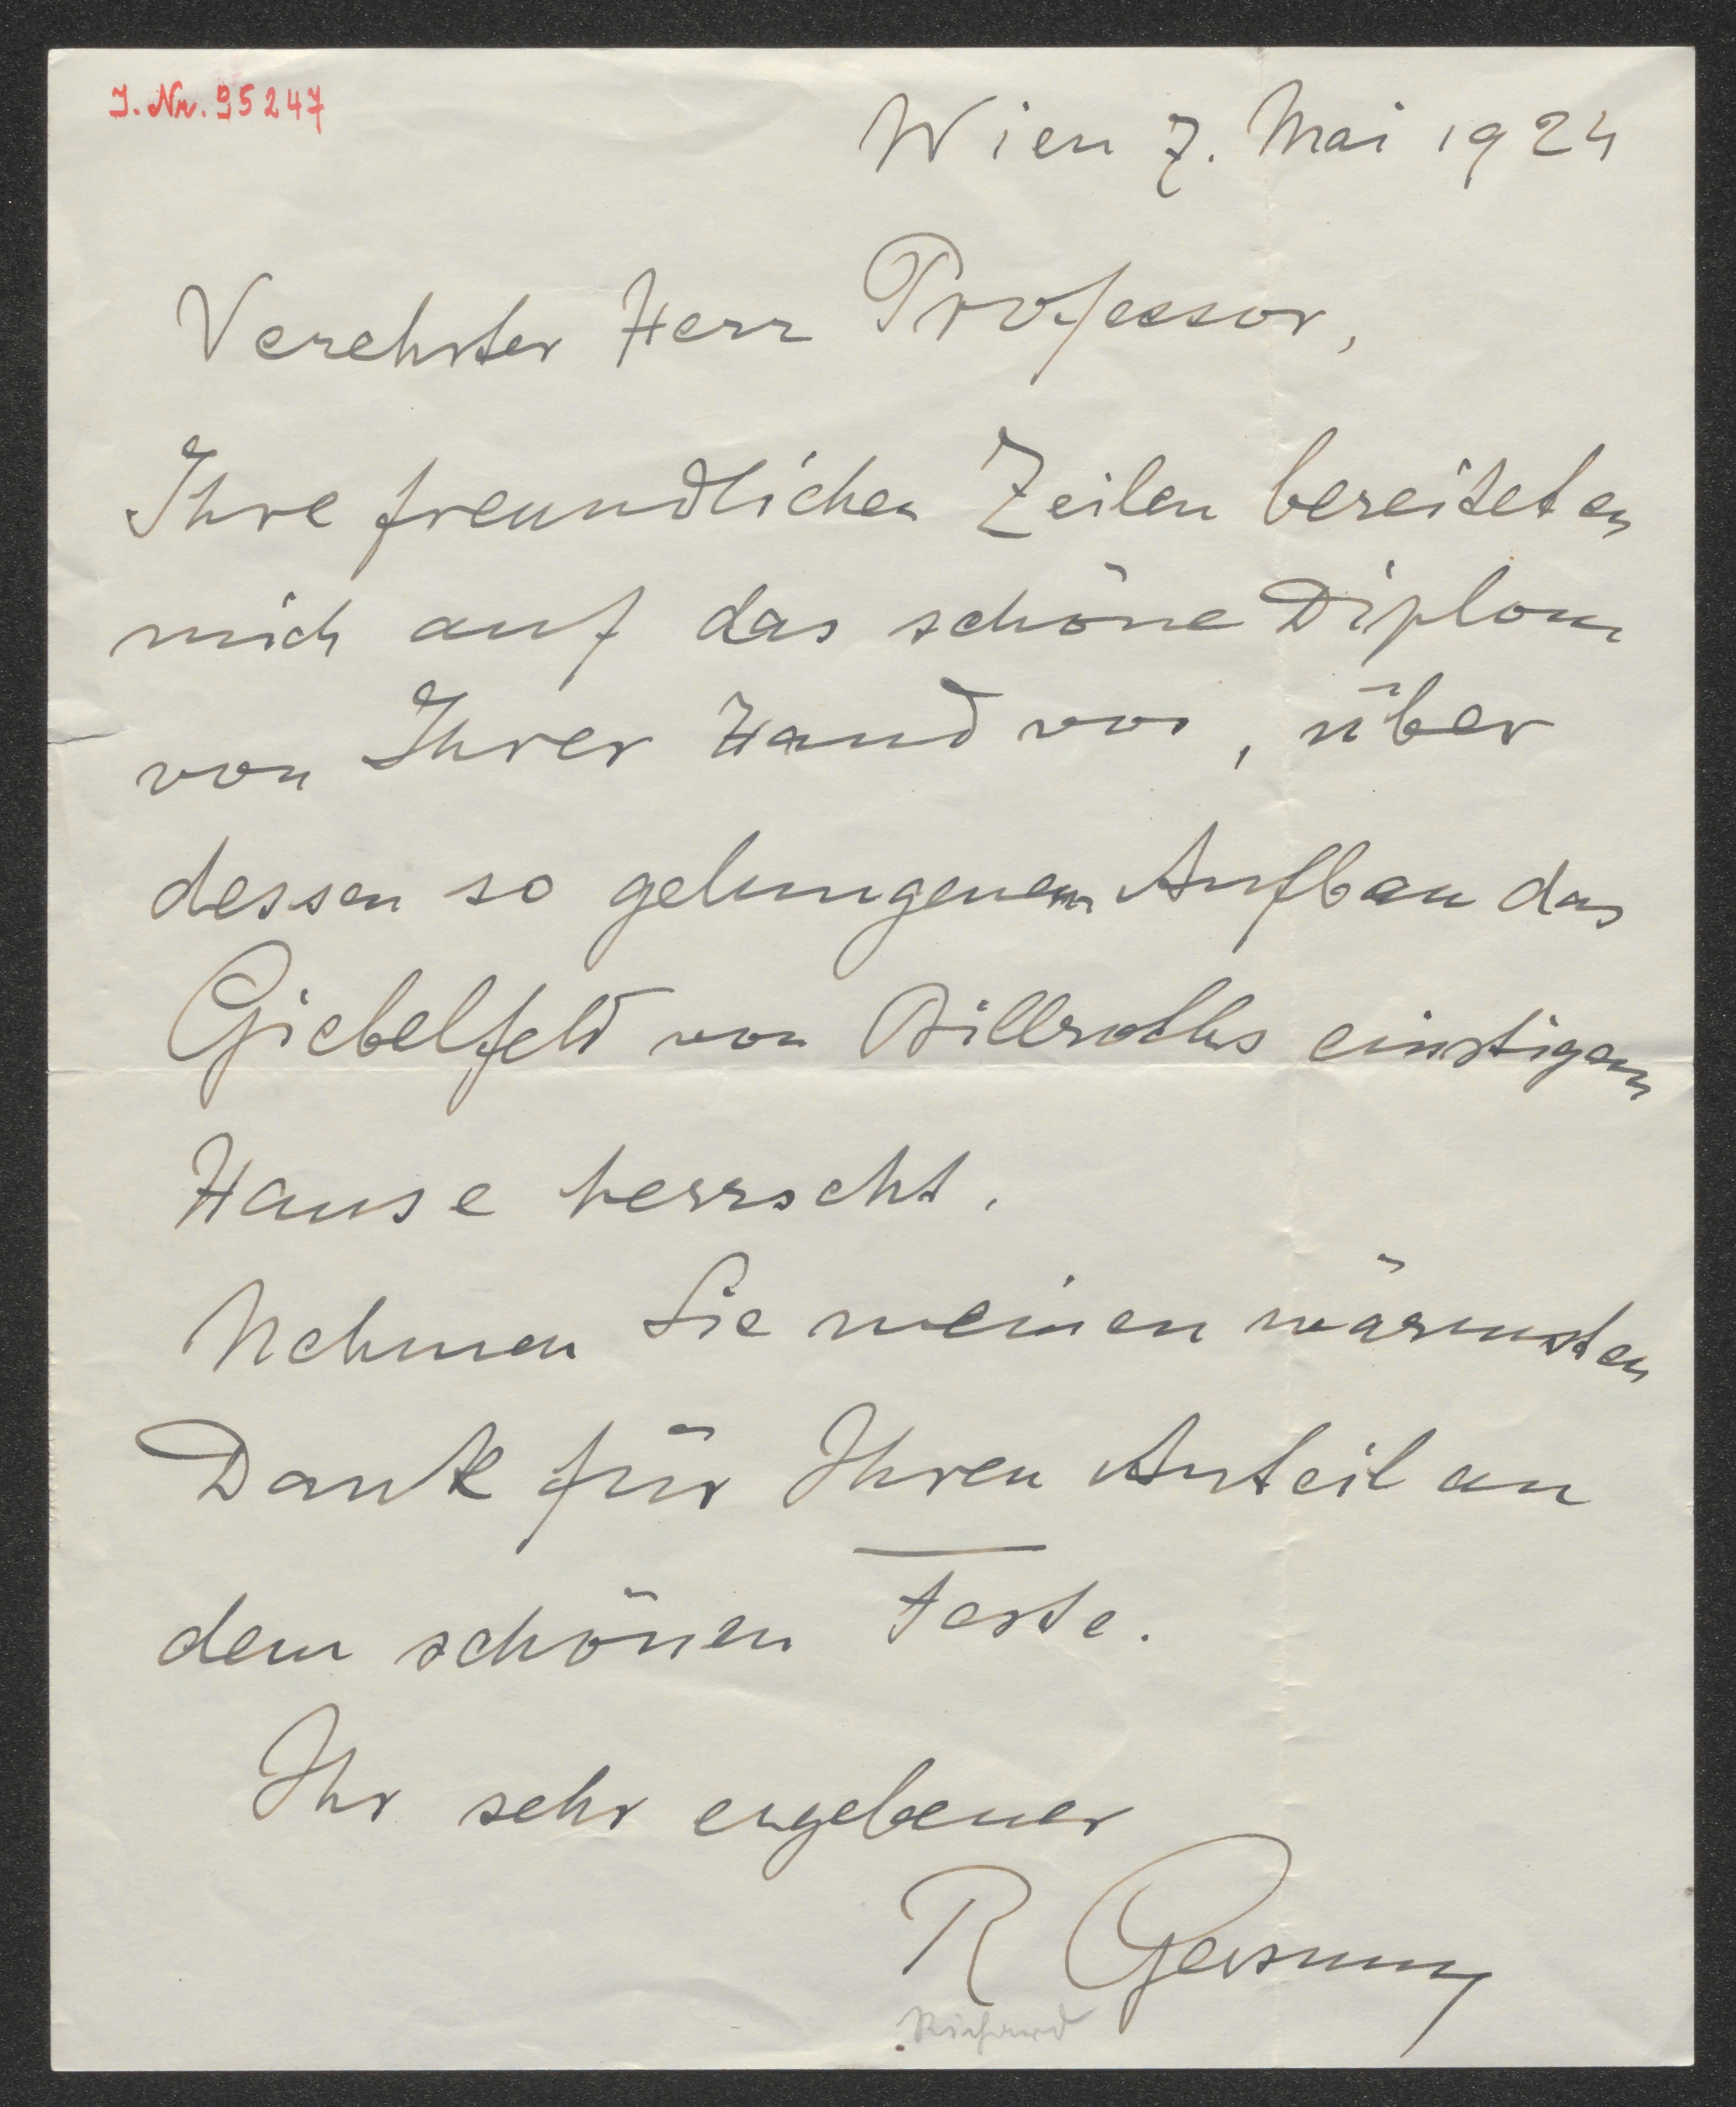 J. Nr. 95247
Wien 7. Mai 1924
Verehrter Herr Professor,
Ihre freundlichen Zeilen bereiteten
mich auf das schöne Diplom
von Ihrer Hand vor, über
dessen so gelungenem Aufbau das
Giebelfeld von Billroths einstigem
Hause herrscht.
Nehmen Sie meinen wärmsten
Dank für Ihren Anteil an
dem schönen Feste.
Ihr sehr ergebener
R Gersuny
Richard